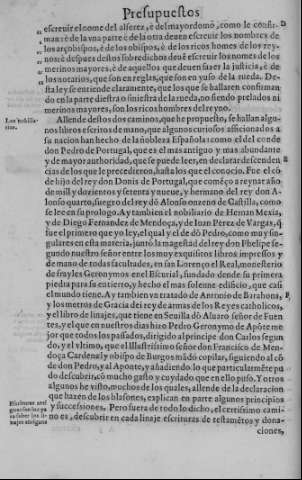 Presupuestos
escreuir el come del alferez, è del mayordomo, como le confir-
man: è de la vna parte è de la otra deuen escreuir los nombres de
los arçobispos, è de los obispos, è de los ricos homes de los rey-
nos: è despues destos sobredichos deuē escreuir los nomes de los
merinos mayores, è de aquellos que deuen fazer la justicia, è de
los notarios, que son en reglas, que son en yuso de la rueda. De-
sta ley se entiende claramente, que los que se hallaren confirman
do en la parte diestra o siniestra de la rueda, no siendo prelados ni
merinos mayores, son los ricos hombres del reyno.
Allende destos dos caminos, que he propuesto, se hallan algu-
nos libros escritos de mano, que algunos curiosos afficionados a
su nacion han hecho de la nobleza Española: como el del conde
don Pedro de Portugal, que es el mas antiguo y mas abundante
y de mayor authoridad, que se puede leer, en declarar descenden
cias de los que le precedieron, hasta los que el conocio. Fue el cõ
de hijo del rey don Donis de Portugal, que començo a reynar año
de mil y dozientos y setenta y nueue, y hermano del rey don A-
lonso quarto, suegro del rey dõ Alonso onzeno de Castilla, como
se lee en su prologo. Ay tambien el nobiliario de Hernan Mexia,
y de Diego Fernandez de Mendoça, y de Iuan Perez de Vargas, q̃
fue el primero que yo ley, el qual y el de dõ Pedro, como muy sin-
gulares en esta materia, juntò la magestad del rey don Phelipe se-
gundo nuestro señor entre los muy exquisitos libros impressos y
de mano de todas facultades, en san Lorenço el Real, monesterio
de frayles Geronymos en el Escurial, fundado dende su primera
piedra para su entierro, y hecho el mas solenne edificio, que casi
el mundo tiene. Ay tambien vn tratado de Antonio de Barahona,
y los metros de Gracia dei rey de armas de los Reyes catholicos,
y el libro de linajes, que tiene en Seuilla dõ Aluaro señor de Fuen
tes, y el que en nuestros dias hizo Pedro Geronymo de Aponte me
jor que todos los passados, dirigido al principe don Carlos segun
do, y el vltimo, que el Illustrissimo señor don Francisco de Men-
doça Cardenal y obispo de Burgos mãdò copilar, siguiendo al cõ
de don Pedro, y al Aponte, y añadiendo lo que particularmēte pu
do descubrir, cõ mucho gasto y cuydado que en ello puso. Y otros
algunos he visto, muchos de los quales, allende de la declaracion
que hazen de los blasones, explican en parte algunos principios
y successiones. Pero fuera de todo lo dicho, el certissimo cami-
no es, descubrir en cada linaje escrituras de testamētos y dona-
ciones,